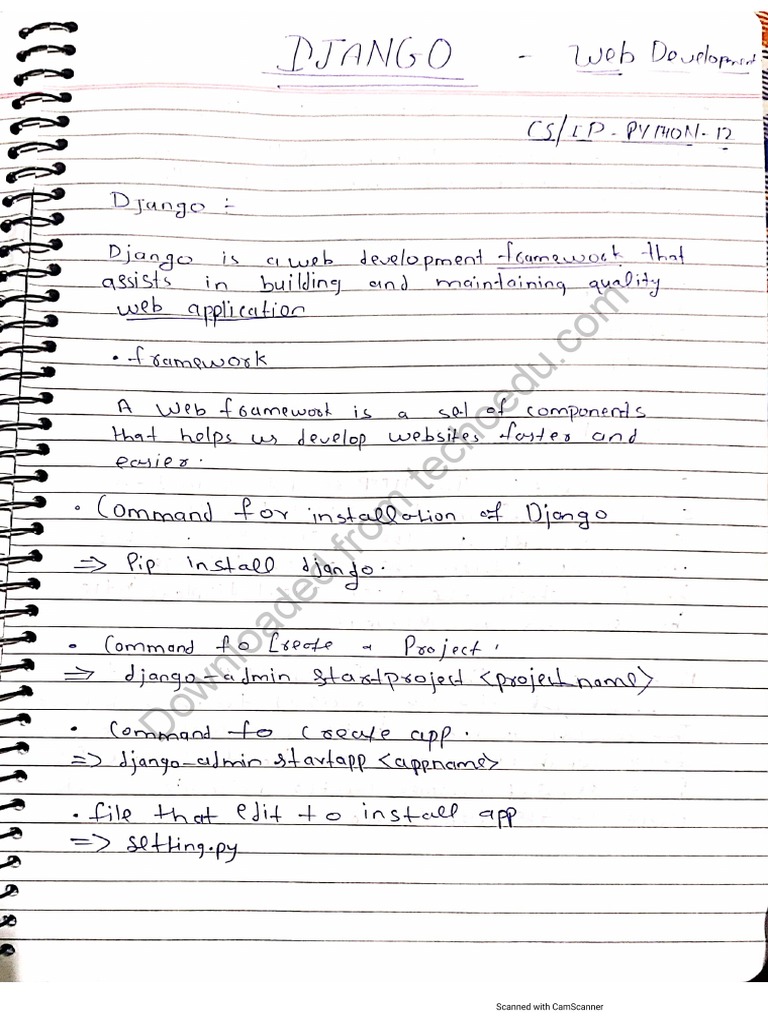 DJANGO - Web Development
CS/IP - PYTHON - 12
Django :-
Django is a web development framework that
assists in building and maintaining quality
web application
• framework
A web framework is a set of components
that helps us develop websites faster and
easier.
• Command for installation of Django
=> Pip install django.
• Command to Create a Project.
=> django-admin startproject <projectname>
• Command to create app.
=> django-admin startapp <appname>
• file that edit to install app
=> setting.py
Downloaded from techoedu.com
Scanned with CamScanner